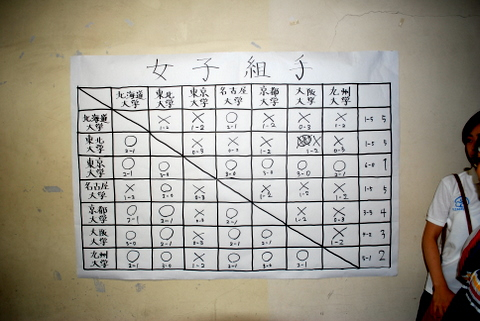 女子組手
北海道大学 東北大学 東京大学 名古屋大学 京都大学 大阪大学 九州大学
北海道大学 × 1-2 × 1-2 ○ 2-1 × 1-2 × 0-3 × 1-2 1-5 5
東北大学 ○ 2-1 × 0-3 × × × 1-2 × 0-3 1-5
東京大学 ○ 2-1 ○ 3-0 ○ ○ ○ 3-0 ○ 2-1 6-0 1
名古屋大学 × 1-2 ○ × 0-3 × 1-2 × × 1-2 1-5 5
京都大学 ○ 2-1 ○ 2-1 × ○ 2-1 × 1-2 × 4
大阪大学 ○ 3-0 ○ 2-1 × 0-3 ○ 2-1 ○ 2-1 × 1-2 3
九州大学 ○ 2-1 ○ 3-0 × 1-2 ○ 2-1 ○ ○ 2-1 5-1 2